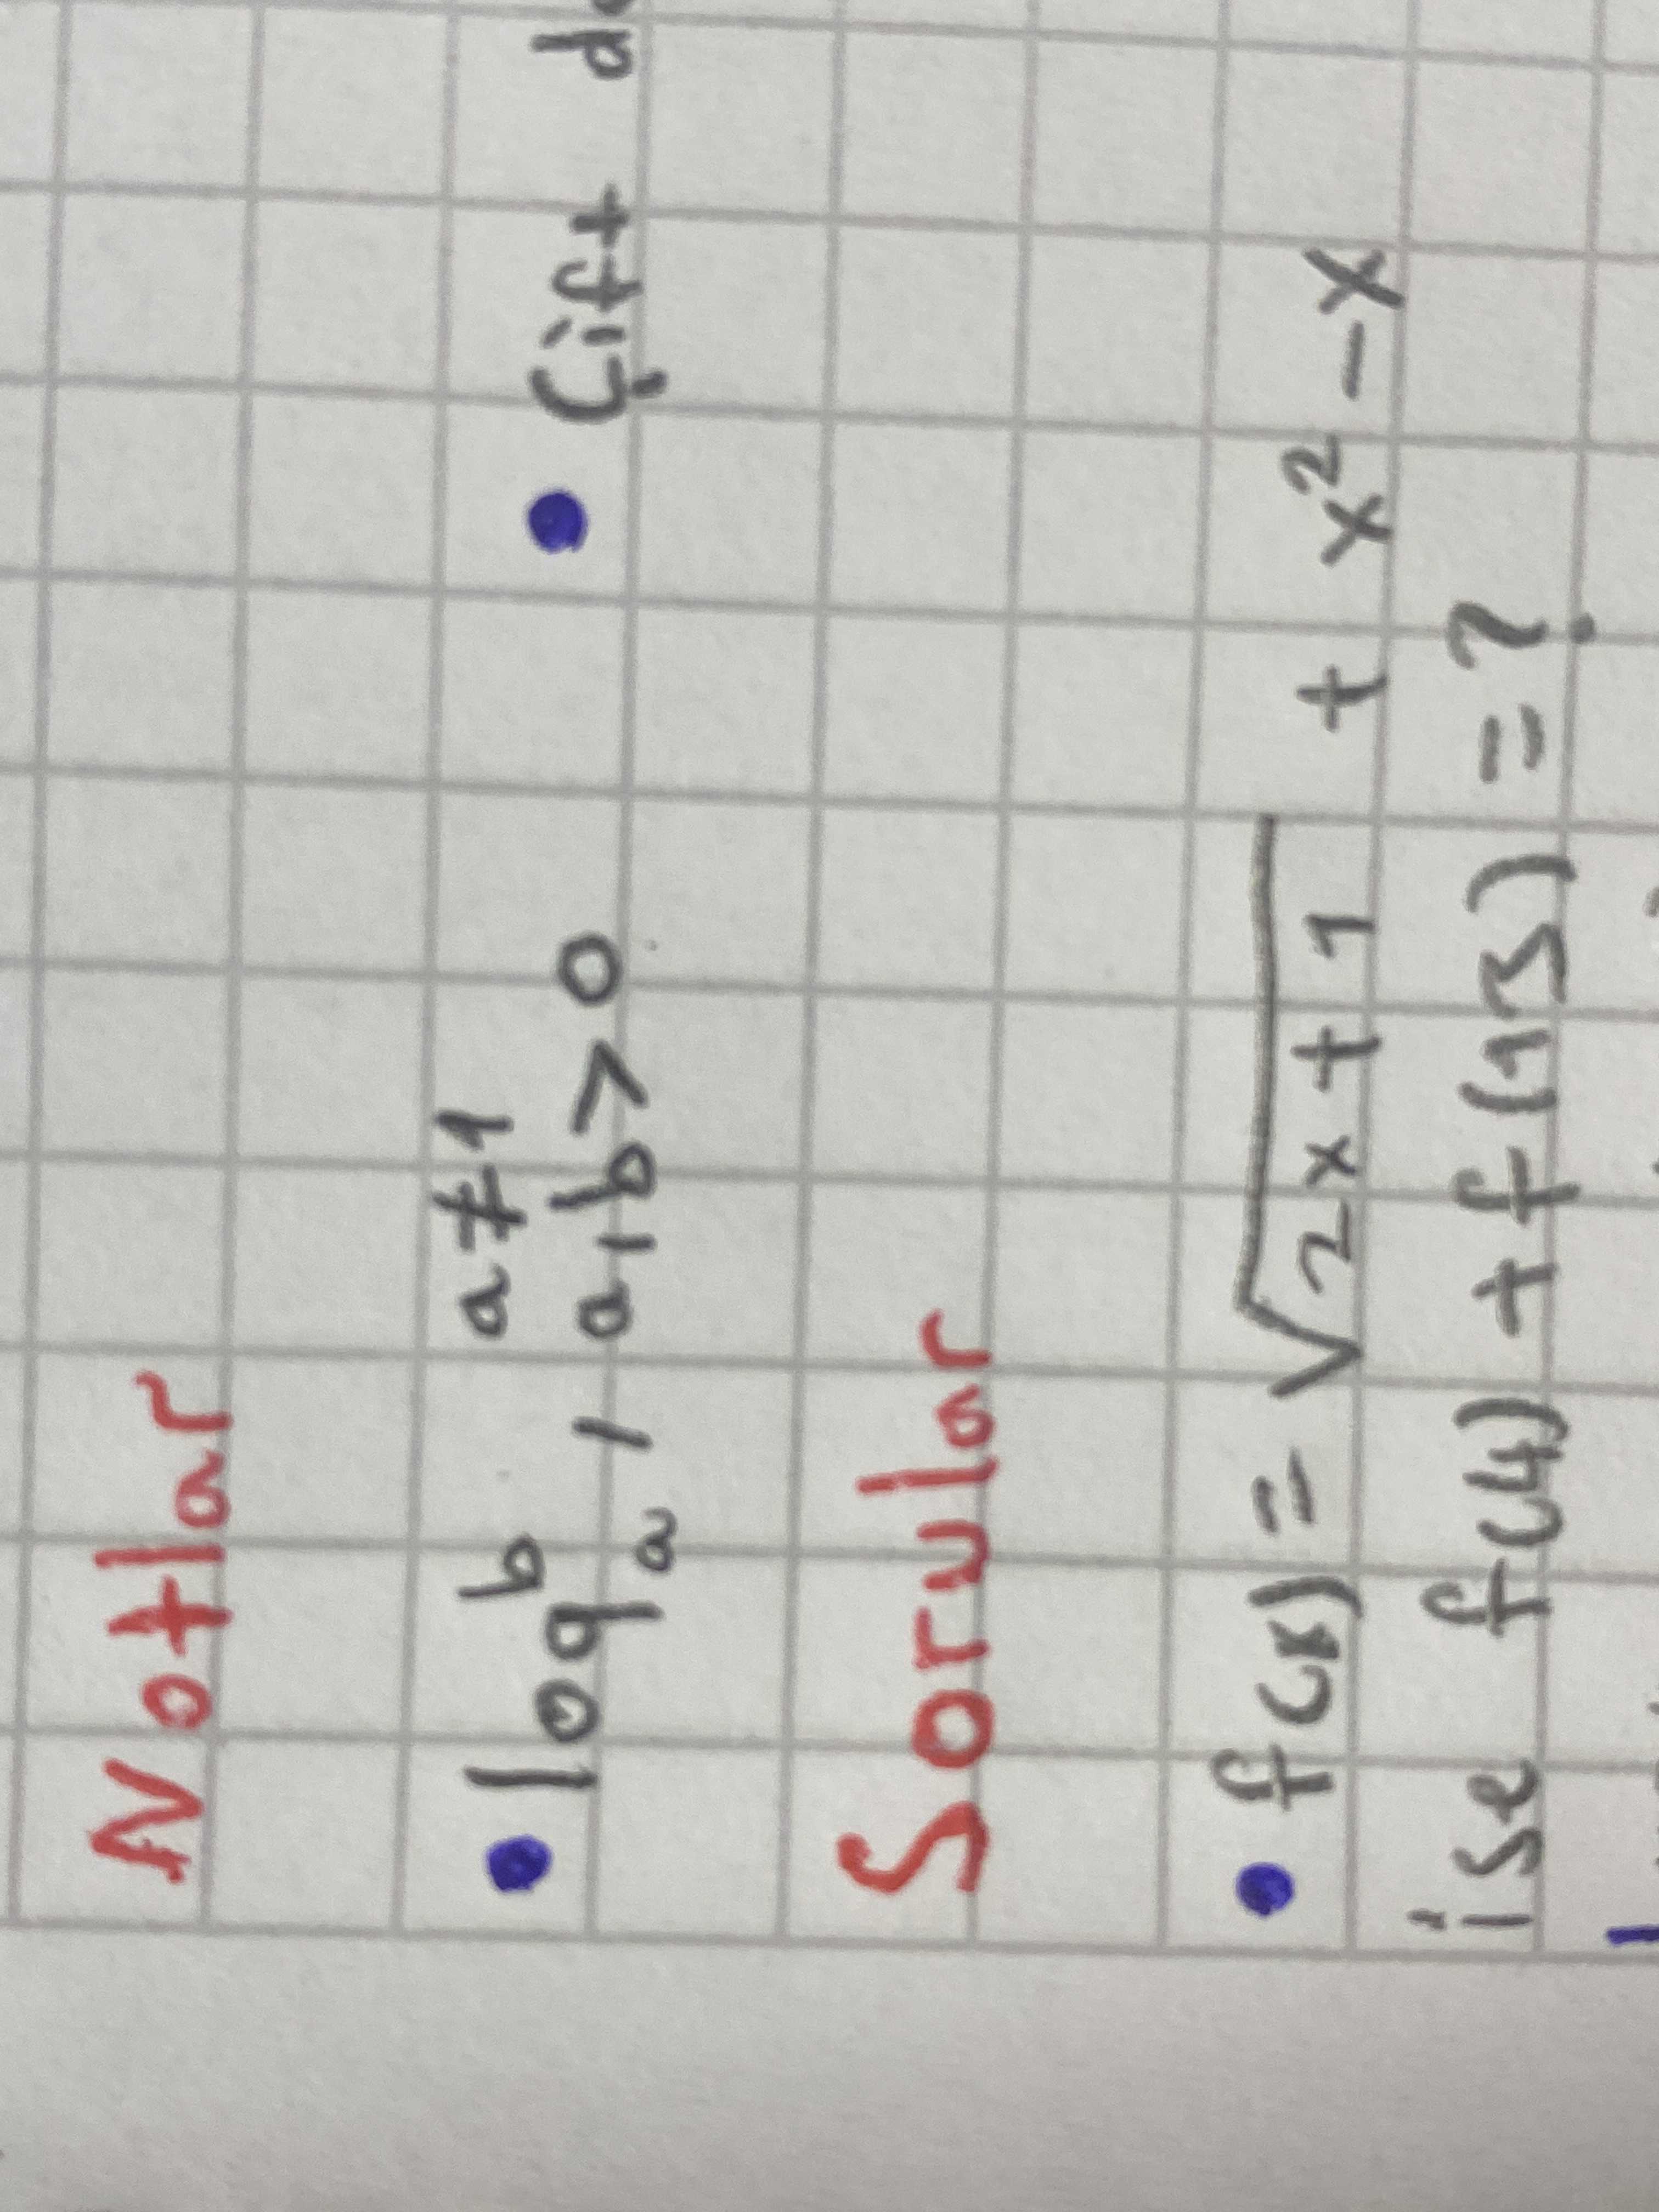 Notlar
• logₐᵇ , a≠1 a,b>0 • Çift
Sorular
• f(x) = √(2x+1) + x² - x
ise f(4) + f(13) = ?